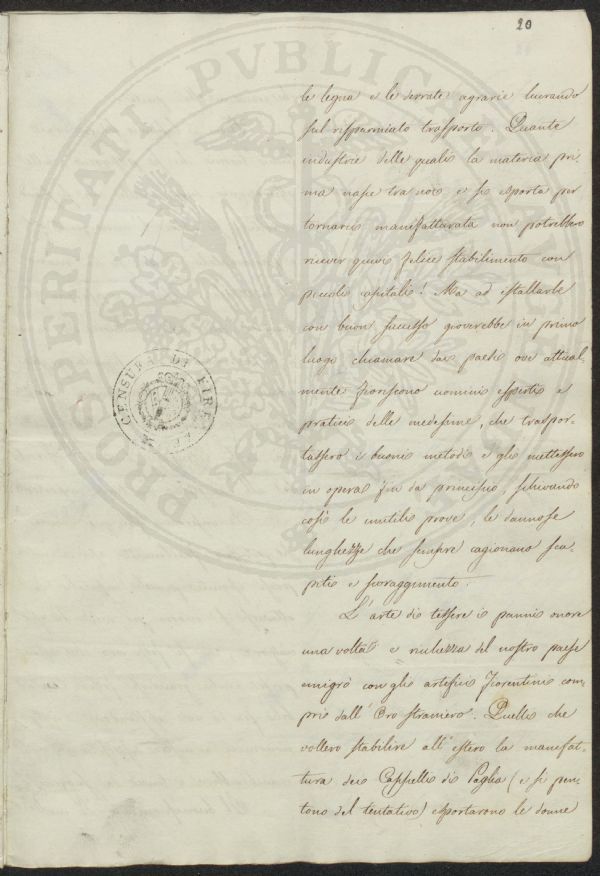 20
le legna e le derrate agrarie lucrando
sul risparmiato trasporto. Quante
industrie delle quali la materia pri-
ma nasce tra noi e si esporta per
tornarci manifatturata non potrebbero
ricever quivi felice stabilimento con
piccoli capitali! Ma ad istallarle
con buon successo gioverebbe in primo
luogo chiamare dai paesi ove attual-
mente fioriscono uomini esperti e
pratici delle medesime, che traspor-
tassero i buoni metodi e gli mettessero
in opera fin da principio, schivando
così le inutili prove, le dannose
lunghezze che sempre cagionano sca-
pito e scoraggimento.
L'arte di tessere i panni onore
una volta e ricchezza del nostro paese
emigrò con gli artefici Fiorentini com-
pri dall'Oro straniero. Quelli che
vollero stabilire all'estero la manifat-
tura dei Cappelli di Paglia (e si pen-
tono del tentativo) esportarono le donne
CENSURA DI FIRE
PROSPERITATI PVBLICAE